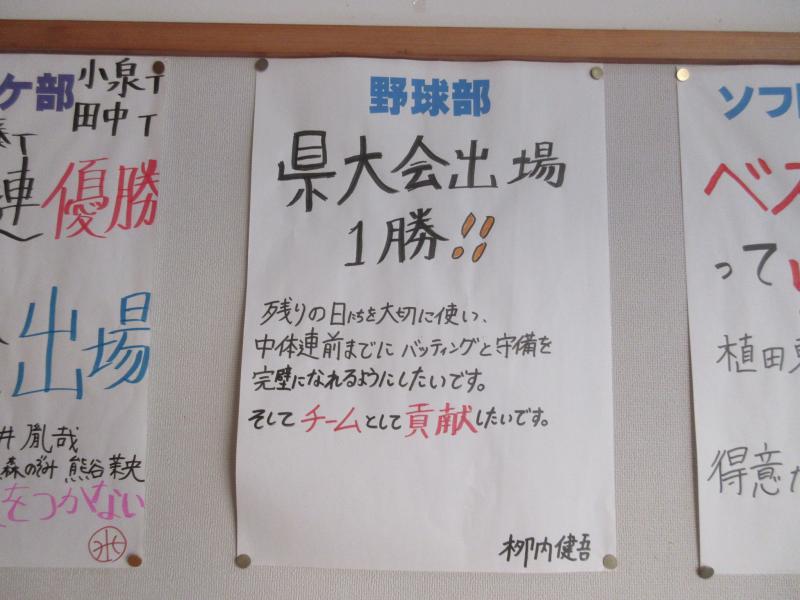 ケ部
小泉T
田中T
優勝
出場
井胤哉
森のぞみ 熊谷茉央
をつかない
野球部
県大会出場
1勝!!
残りの日にちを大切に使い、
中体連前までにバッティングと守備を
完璧になれるようにしたいです。
そしてチームとして貢献したいです。
栁内健吾
ソフト
ベス
って
植田
得意